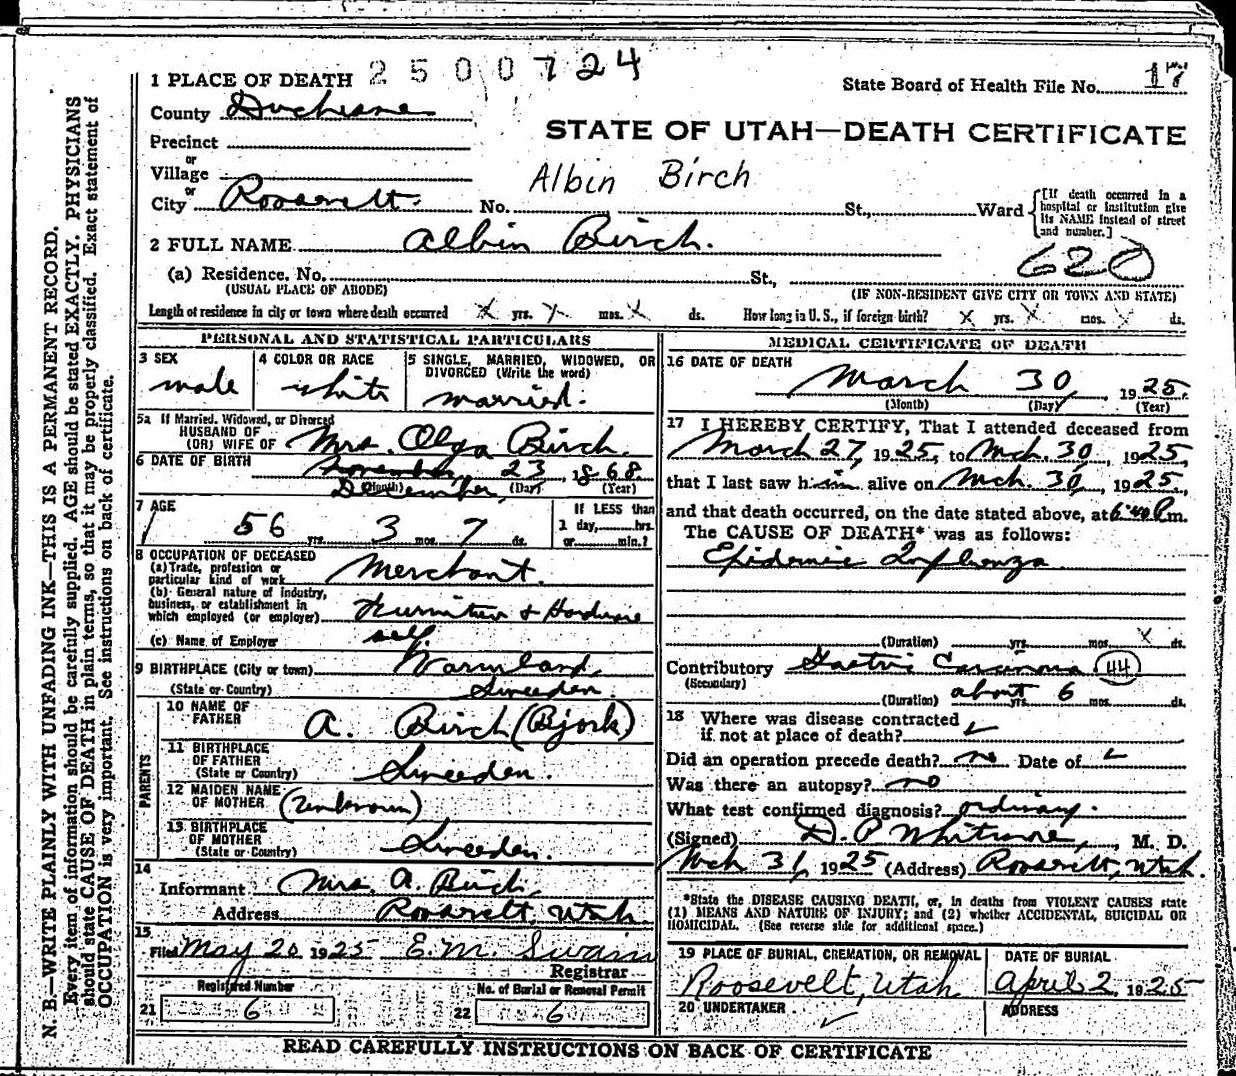 1 PLACE OF DEATH 2500724
State Board of Health File No. 17
County Duchesne
STATE OF UTAH—DEATH CERTIFICATE
Precinct
or
Village
Albin Birch
or
City Roosevelt. No. St., Ward
[If death occurred in a
hospital or institution give
its NAME instead of street
and number.]
2 FULL NAME Albin Birch.
620
(a) Residence. No. St.,
(USUAL PLACE OF ABODE) (IF NON-RESIDENT GIVE CITY OR TOWN AND STATE)
Length of residence in city or town where death occurred X yrs. X mos. X ds. How long in U. S., if foreign birth? X yrs. X mos. X ds.
PERSONAL AND STATISTICAL PARTICULARS
3 SEX
male
4 COLOR OR RACE
white
5 SINGLE, MARRIED, WIDOWED, OR
DIVORCED (Write the word)
married.
5a If Married, Widowed, or Divorced
HUSBAND OF
(OR) WIFE OF Mrs. Olga Birch.
6 DATE OF BIRTH November, 23, 1868.
(Month) (Day) (Year)
December,
7 AGE
56 yrs. 3 mos. 7 ds.
If LESS than
1 day, hrs.
or min.?
8 OCCUPATION OF DECEASED
(a) Trade, profession or
particular kind of work Merchant.
(b) General nature of Industry,
business, or establishment in
which employed (or employer) Furniture & Hardware
(c) Name of Employer self.
9 BIRTHPLACE (City or town) Warmland,
(State or Country) Sweeden.
PARENTS
10 NAME OF
FATHER A. Birch (Bjork)
11 BIRTHPLACE
OF FATHER
(State or Country) Sweeden.
12 MAIDEN NAME
OF MOTHER (unknown)
13 BIRTHPLACE
OF MOTHER
(State or Country) Sweeden.
14
Informant Mrs. A. Birch,
Address Roosevelt, Utah.
15
Filed May 20 1925 E.M. Swain
Registrar
Registered Number
21 6
No. of Burial or Removal Permit
22 6
MEDICAL CERTIFICATE OF DEATH
16 DATE OF DEATH
March 30, 1925.
(Month) (Day) (Year)
17 I HEREBY CERTIFY, That I attended deceased from
March 27, 1925, to Mch. 30, 1925,
that I last saw him alive on Mch. 30, 1925,
and that death occurred, on the date stated above, at 6:40 P.m.
The CAUSE OF DEATH* was as follows:
Epidemic Influenza
(Duration) yrs. mos. X ds.
Contributory Gastric Carcinoma (44)
(Secondary)
(Duration) about yrs. 6 mos. ds.
18 Where was disease contracted
if not at place of death?
Did an operation precede death? no Date of
Was there an autopsy? no
What test confirmed diagnosis? ordinary.
(Signed) D. P. Whitmore, M. D.
Mch 31, 1925 (Address) Roosevelt, Utah.
*State the DISEASE CAUSING DEATH, or, in deaths from VIOLENT CAUSES state
(1) MEANS AND NATURE OF INJURY; and (2) whether ACCIDENTAL, SUICIDAL OR
HOMICIDAL. (See reverse side for additional space.)
19 PLACE OF BURIAL, CREMATION, OR REMOVAL
Roosevelt, Utah
DATE OF BURIAL
April 2, 1925
20 UNDERTAKER
ADDRESS
READ CAREFULLY INSTRUCTIONS ON BACK OF CERTIFICATE
N. B.—WRITE PLAINLY WITH UNFADING INK—THIS IS A PERMANENT RECORD.
Every item of information should be carefully supplied. AGE should be stated EXACTLY. PHYSICIANS
should state CAUSE OF DEATH in plain terms, so that it may be properly classified. Exact statement of
OCCUPATION is very important. See instructions on back of certificate.